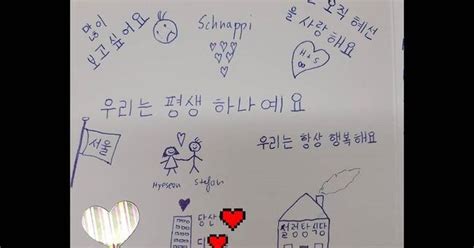 많이
보고싶어요
Schnappi
오직 혜선
을 사랑해요
H + S
∞
우리는 평생 하나예요
서울
우리는 항상 행복해요
Hyeseon Stefan
당산
설렁탕식당